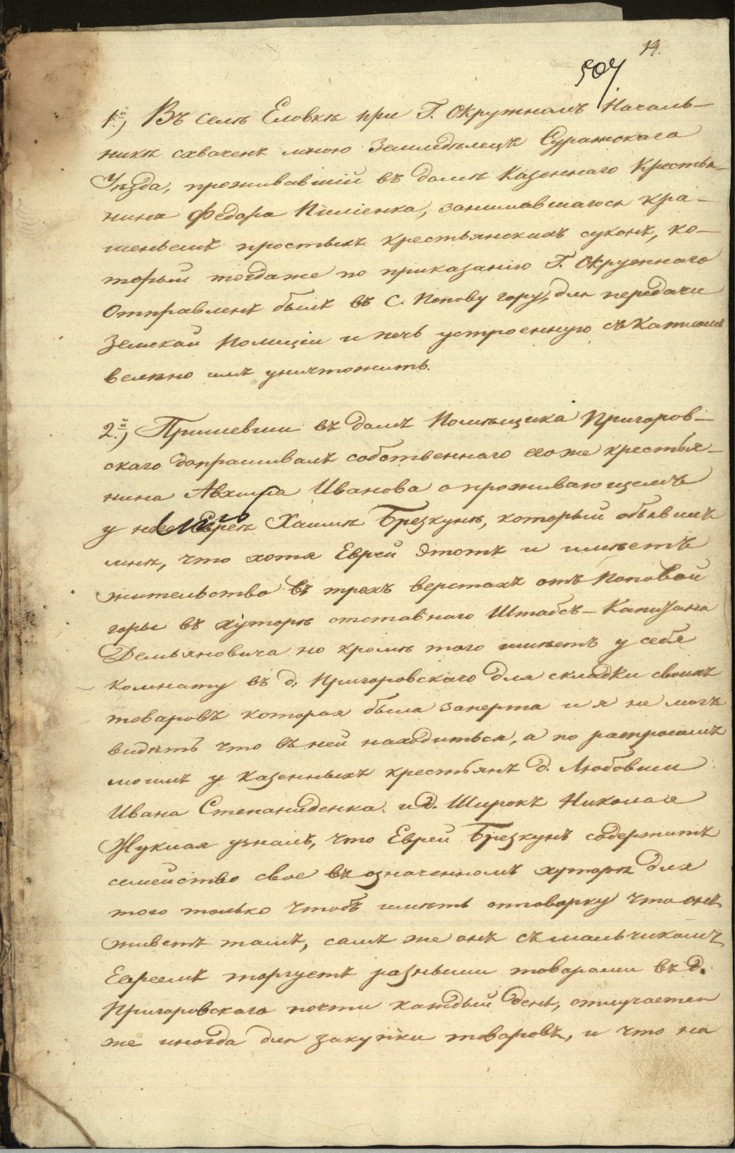 14.
507
1й) Въ селѣ Еловкѣ при Г. Окружномъ Началь-
никѣ схваченъ мною Земледѣлецъ Суражскаго
Уѣзда, проживавшій въ домѣ Казеннаго Крестья-
нина Федора Пиліенка, занимавшагося кра-
шеньемъ простыхъ крестьянскихъ суконъ, ко-
торый тогда же по приказанію Г. Окружнаго
Отправленъ былъ въ С. Попову гору, для передачи
Земской Полиціи и печь устроенную съ
велѣно имъ уничтожить.
2й) Пришедши въ домъ Помѣщика Пригоров-
скаго допрашивалъ собственнаго его же крестья-
нина Иванова о проживающемъ
у него Евреѣ Хаимѣ Брезкунѣ, который объявилъ
мнѣ, что хотя Еврей этотъ и имѣетъ
жительство въ трехъ верстахъ отъ Поповой
горы въ хуторѣ отставнаго Штабсъ-Капитана
Демьяновича но кромѣ того имѣетъ у себе
комнату въ д. Пригоровскаго для складки своихъ
товаровъ которая была заперта и я не могъ
видѣть что въ ней находиться, а по распросамъ
моимъ у казенныхъ крестьянъ д. Любовши
Ивана Степаниденка и д. Широкъ Николая
Жукмая узналъ, что Еврей Брезкунъ содержитъ
семейство свое въ означенномъ хуторѣ для
того только чтобъ имѣть отговорку что онъ
живетъ тамъ, самъ же онъ съ мальчикомъ
Евреемъ торгуетъ разными товарами въ д.
Пригоровскаго почти каждый день, отлучается
же иногда для закупки товаровъ, и что на